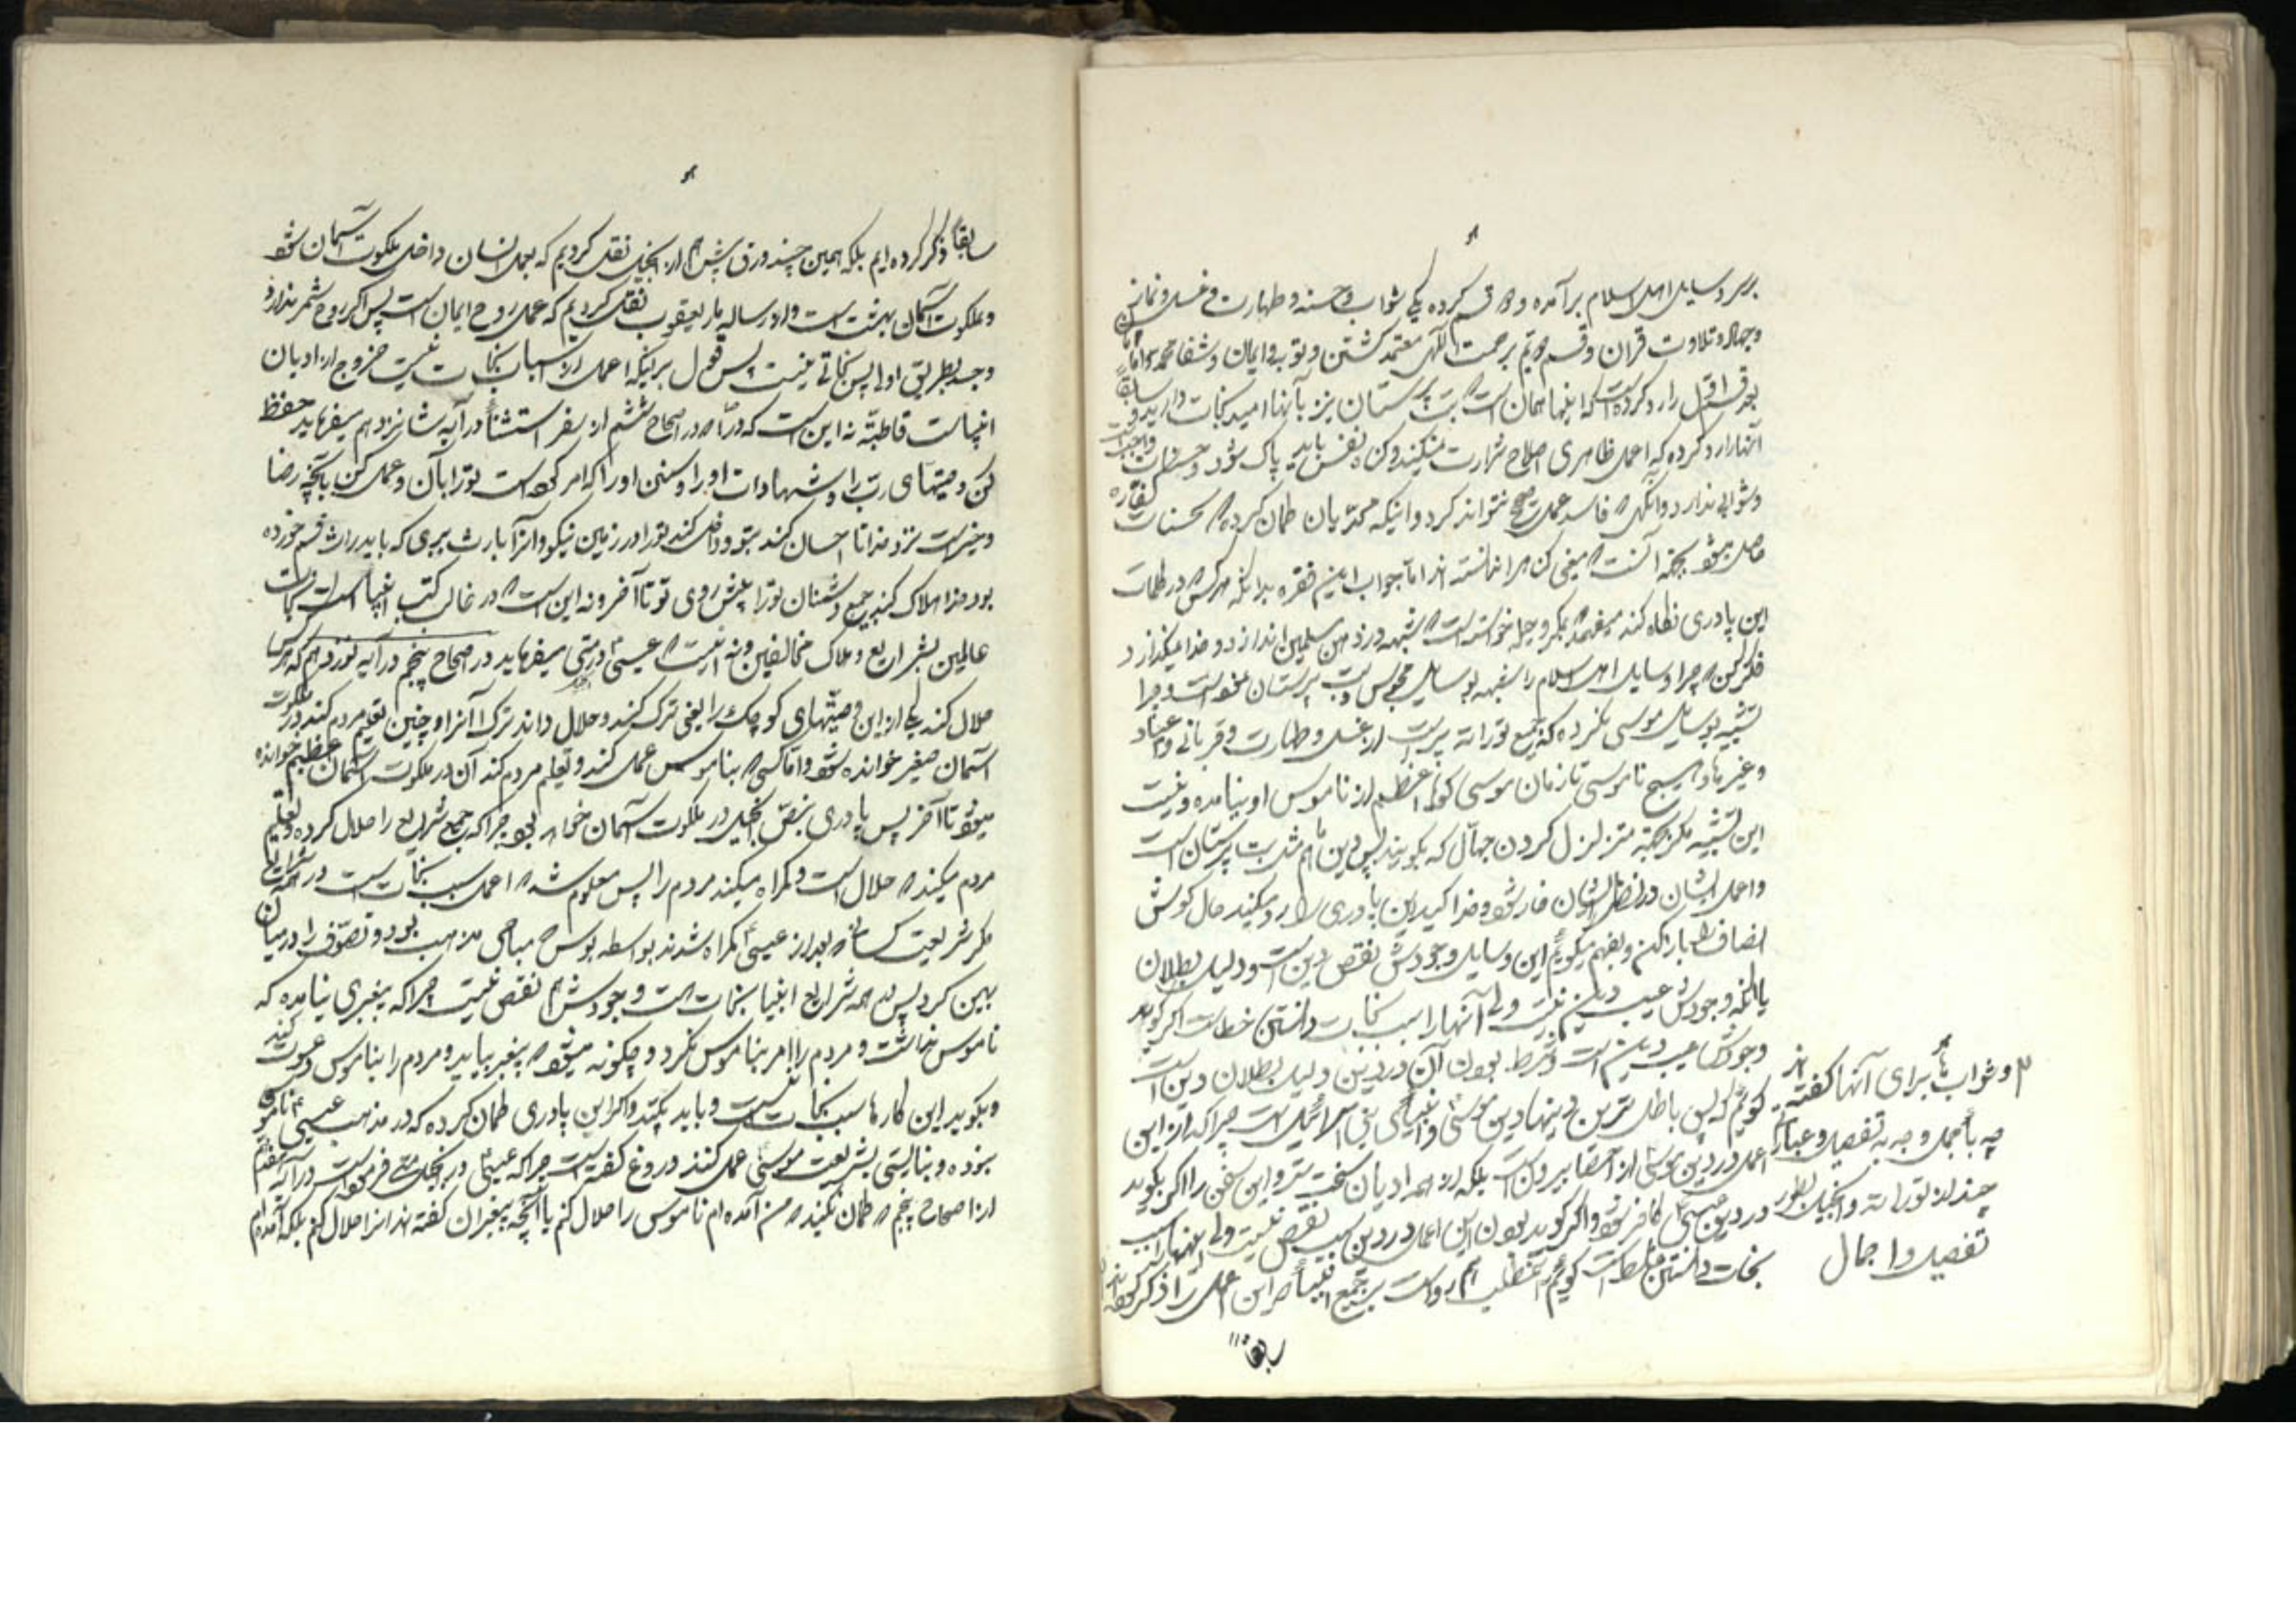 هو
بر سر وسایل اهل اسلام برآمده و دو قسم کرده یکی ثواب و حسنه و طهارت و غسل و نماز
و جهاد و تلاوت قران و قسم دویم برحمت الهی معتمد گشتن و توبه و ایمان و شفا محمد ص و اما
بعد قسم اول را رد کرده است که اینها همان است که بت پرستان نیز بآنها امید نجات دارند و سابقا
آنها را رد کرده که اعمال ظاهری اصلاح شرارت نمیکند و کن نفس باید پاک شود و حسنات واجب است
و ثوابی ندارد و انکهی که فاسد عمل صحیح نتواند کرد و اینکه محمدیان گمان کرده که بحسنات کفاره
حاصل میشود بجهة آنست که معنی کن هرا ندانسته اند اما جواب این فقره بدانکه هر کس در کلمات
این پادری نگاه کند میفهمد که بمکر و حیله خواسته است که شبهه در ذهن مسلمین اندازد و خدا میگذارد
فکر کن که چرا وسایل اهل اسلام را شبیه بوسایل مجوس و بت پرستان نموده است و چرا
تشبیه بوسایل موسی نکرده که جمیع توراته پر است از غسل و طهارت و قربانی و اعیاد
و غیرها و هیچ ناموسی تا زمان موسی کویا اعظم از ناموس او نیامده و نیست
این تشبیه مکر بجهة متزلزل کردن جهال که بگویند پس دین ما هم مثل بت پرستان است
و اعمال ایشان در نظر ایشان خار شود و خدا کید این پادری را رد میکند حال گوش
انصاف را باز کن و بفهم میگویم این وسایل وجودش نقص دین است و دلیل بطلان
یا انکه وجودش عیب دین نیست ولی آنها را سبب نجات دانستن خطاست اگر گوید
وجودش عیب دین است و شرط بودن آن در دین دلیل بطلان دین است
گویم که پس باطل ترین دینها دین موسی و انبیای بنی اسرائیل است چرا که از این
اعمال در دین موسی از احصا بیرون است بلکه از همه ادیان سخت تر و این سخن را اگر بگوید
در دین عیسی کافر شود و اگر گوید بودن این اعمال در دین سبب نقص نیست ولی اینها را سبب
نجات دانستن غلط است گویم غلط رد است بر جمیع انبیا مر این اعمال را ذکر کرده اند
سابقا
و ثوابها برای آنها گفته اند
چه باجمال و چه به تفصیل و عبارات
چند از توراته و انجیل بطور
تفصیل و اجمال
هو
سابقا ذکر کرده ایم بلکه همین چند ورق پیش از انجیل نقل کردیم که بعمل انسان داخل ملکوت آسمان شود
و ملکوت آسمان بهشت است و از رساله مار یعقوب نقل کردیم که عمل روح ایمان است پس اگر روح ثمر ندارد
جسد بطریق اولی پس نجاتی نیست پس قول بر اینکه اعمال از اسباب نجات نیست خروج از ادیان
انبیاست قاطبة نه این است که در توراة در اصحاح ششم از سفر استثنا در آیه شانزدهم میفرماید حفظ
کن وصیتهای رب را و شهادات او را و سنن او را که امر کرده است تو را بآن و عمل کن بآنچه رضا
و خیر است نزد خدا تا احسان کند بتو و داخل کند تو را در زمین نیکو و از آبا ارث بری که باید راث قسم خورده
بود خدا هلاک کند جمیع دشمنان تو را پیش روی تو تا آخر و نه این است که در غالب کتب انبیا است نجات
عالمین بشرایع و هلاک مخالفین و نه اینست که عیسی در متی میفرماید در اصحاح پنجم در آیه نوزدهم که هر کس
حلال کند یکی از این وصیتهای کوچک را یعنی ترک کند و حلال داند ترک آنرا و چنین تعلیم مردم کند در ملکوت
آسمان صغیر خوانده شود و اما کسی که بناموس عمل کند و تعلیم مردم کند آن در ملکوت آسمان عظیم خوانده
میشود تا آخر پس پادری بنص انجیل در ملکوت آسمان خوار بود چرا که جمیع شرایع را حلال کرده و تعلیم
مردم میکند که حلال است و گمراه میکند مردم را پس معلوم شد که اعمال سبب نجات است در همه شرایع
مگر شریعت کسانی که بعد از عیسی گمراه شدند بواسطه بولس که مباحی مذهب بود و تصوف را در میان آن
پهن کرد پس همه شرایع انبیا نجات است و وجودش نقص نیست چرا که پیغمبری نیامده که
ناموس نداشت و مردم را امر بناموس نکرد و چگونه میشود که پیغمبر بیاید و مردم را بناموس دعوت کند
و بگوید این کارها سبب نجات نیست و باید بکنید و اگر این پادری گمان کرده که در مذهب عیسی ناموس
نبوده و بنا نیستی بشریعت موسی عمل کنند دروغ گفته است چرا که عیسی در انجیل متی فرموده است در آیه هفدهم
از اصحاح پنجم که گمان نکنید که من آمده ام ناموس را حلال کنم یا آنچه پیغمبران گفته اند انرا حلال کنم بلکه آمده ام